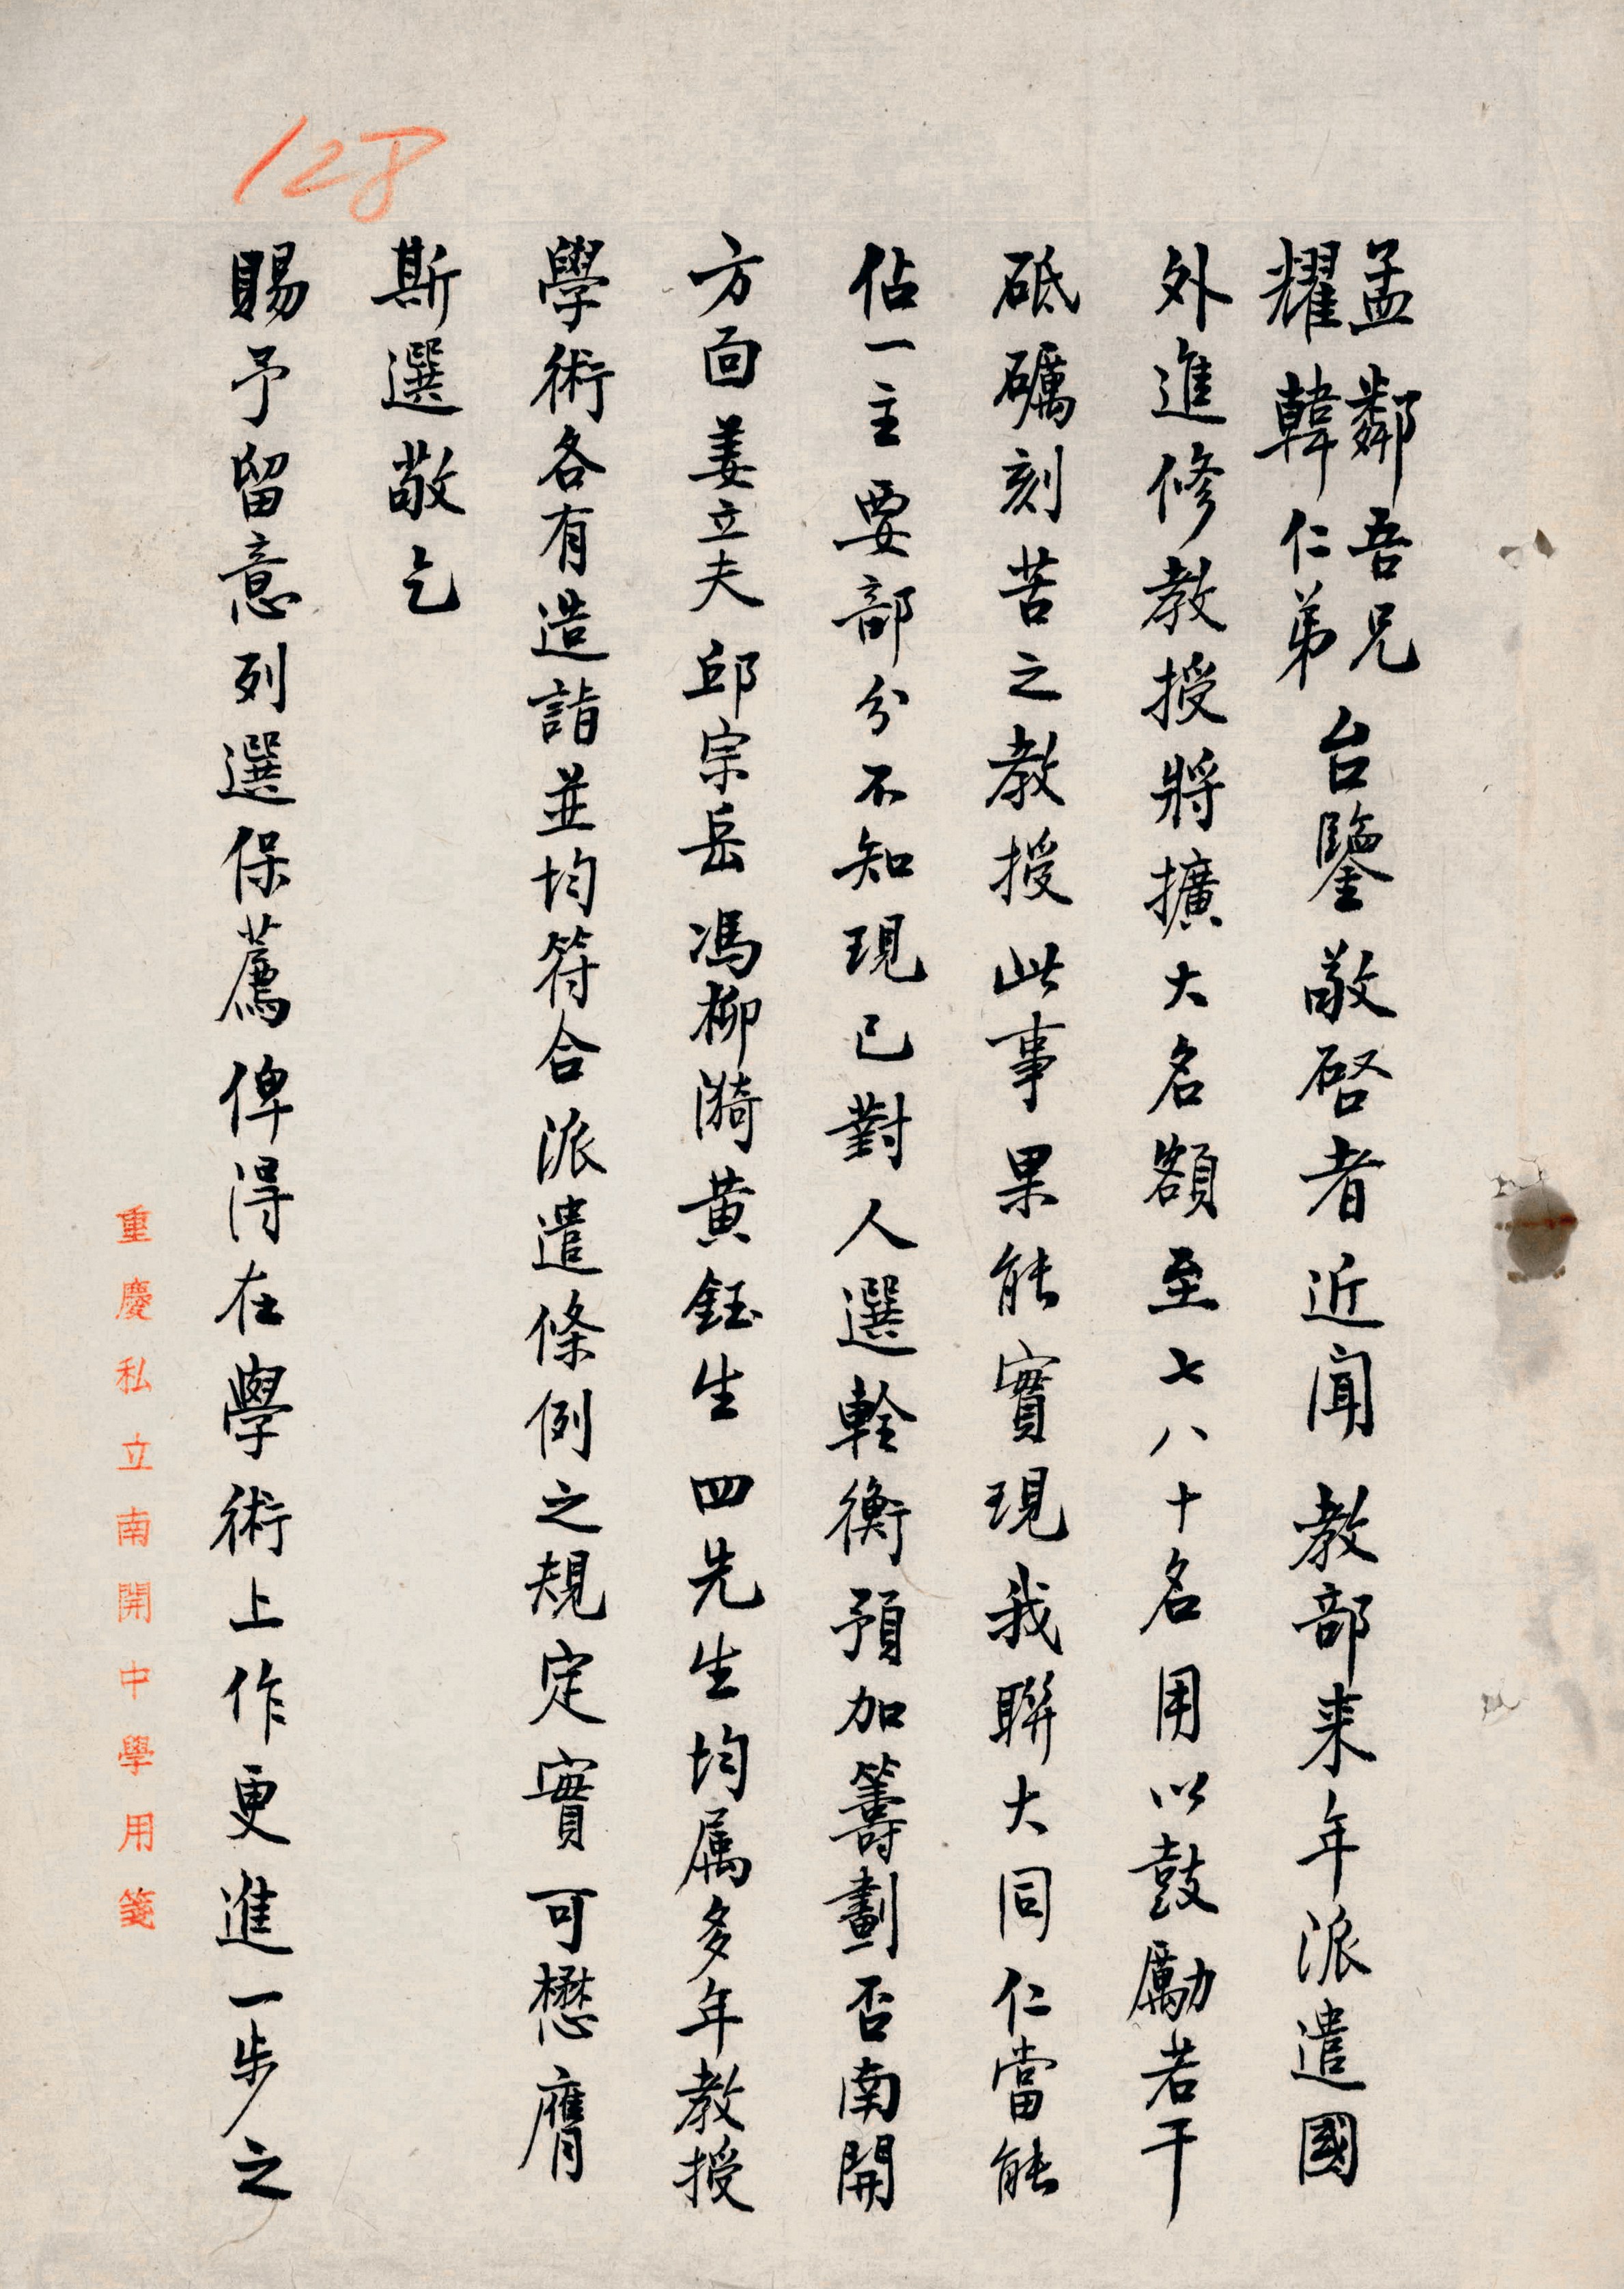 128
孟鄰吾兄
耀韓仁弟
台鑒敬啓者近聞教部来年派遣國
外進修教授將擴大名額至七八十名用以鼓勵若干
砥礪刻苦之教授此事果能實現我聯大同仁當能
佔一主要部分不知現已對人選輇衡預加籌劃否南開
方面姜立夫邱宗岳馮柳漪黃鈺生四先生均属多年教授
學術各有造詣並均符合派遣條例之規定實可懋膺
斯選敬乞
賜予留意列選保薦俾得在學術上作更進一步之
重慶私立南開中學用箋